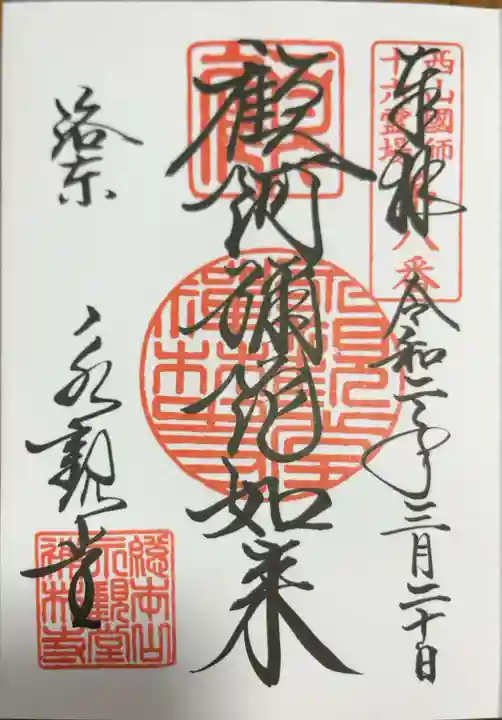 西山國師
十六霊場
第八番
奉拝
令和二年三月二十日
顧阿彌陀如来
洛東
永観堂
総本山
永観堂
禅林寺